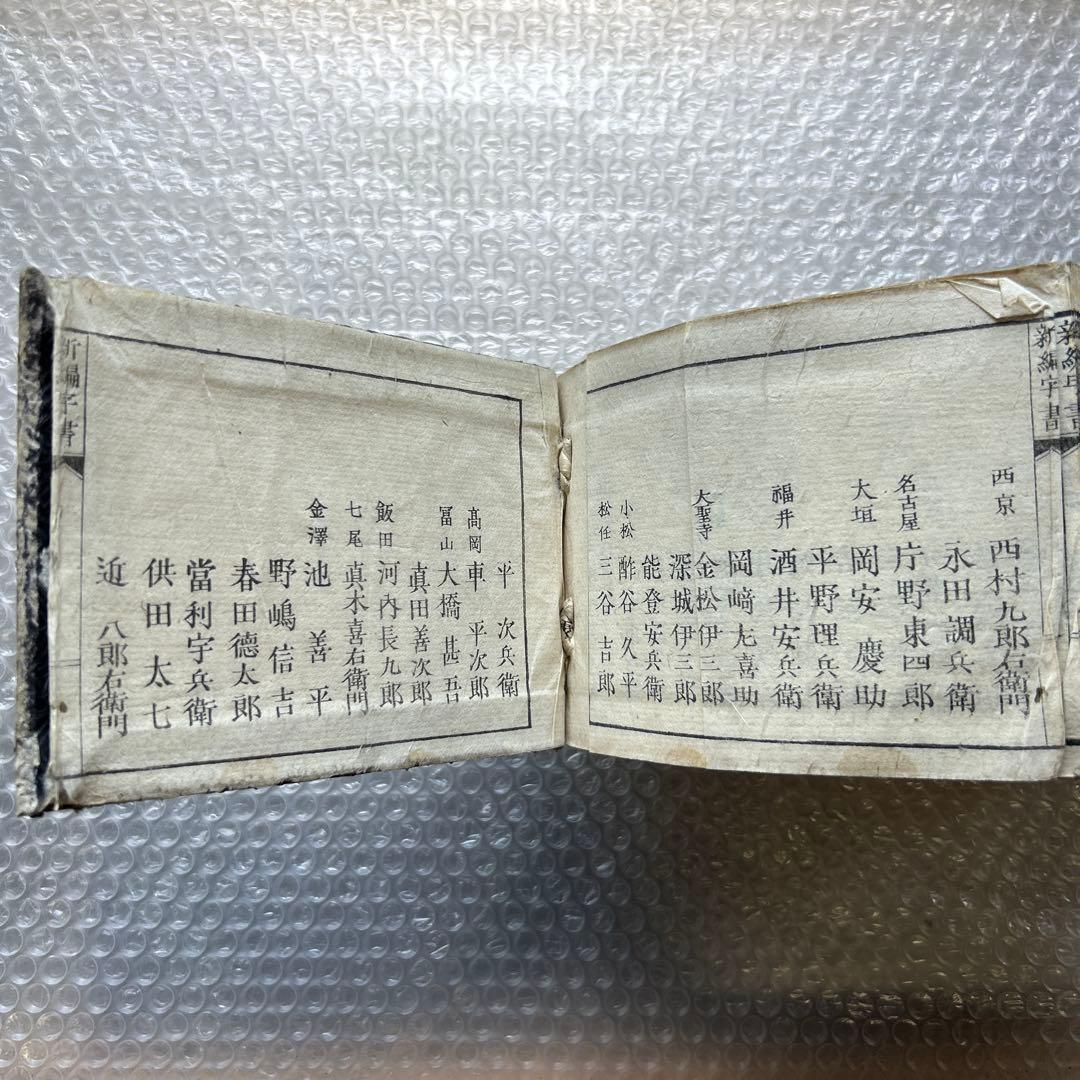 新編字書
西京 西村九郎右衛門
永田調兵衛
名古屋 片野東四郎
大垣 岡安慶助
平野理兵衛
福井 酒井安兵衛
岡﨑尤喜助
大聖寺 金松伊三郎
深城伊三郎
能登安兵衛
小松 酢谷久平
松任 三谷吉郎
平次兵衛
高岡 車平次郎
冨山 大橋甚吾
真田善次郎
飯田 河內長九郎
七尾 真木喜右衛門
金澤 池善平
野嶋信吉
春田德太郎
當利宇兵衛
供田太七
近八郎右衛門
新編字書